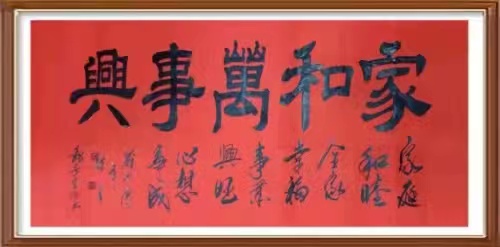 家和萬事興
家庭
和睦
全家
幸福
事業
興旺
心想
事成